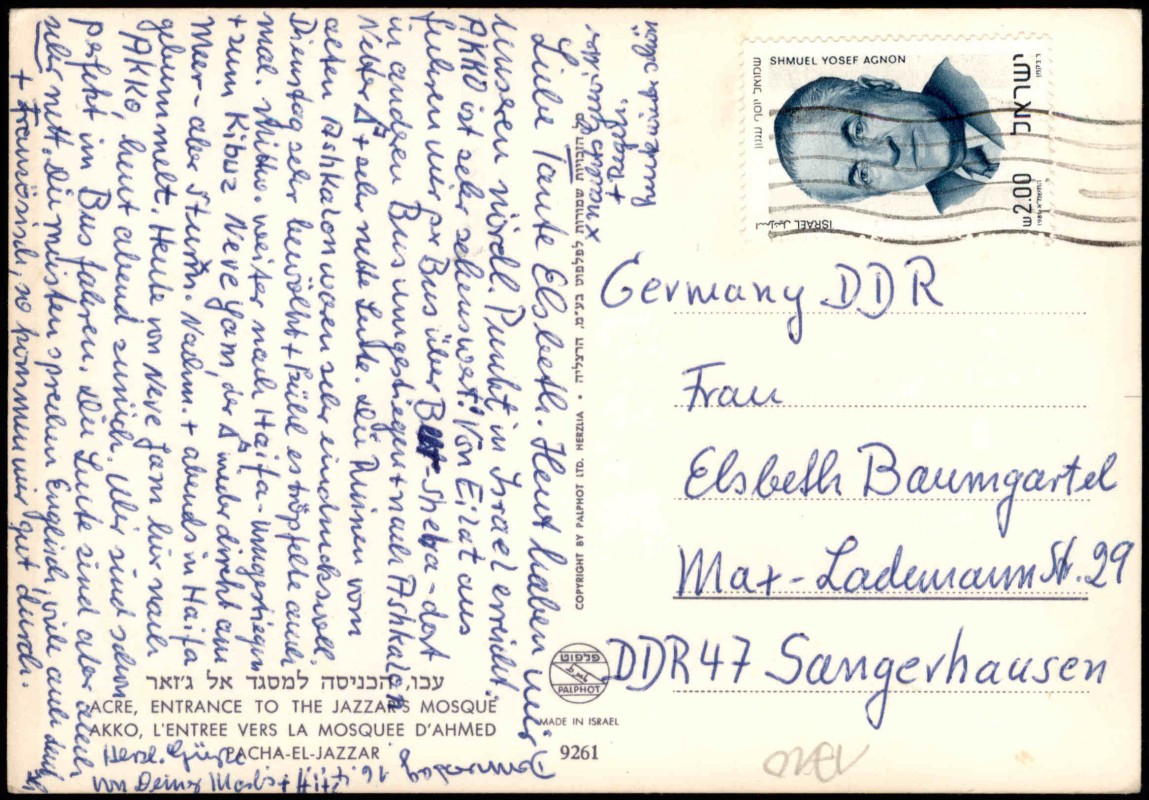 Donnerstag
16.
Liebe Tante Elsbeth. Heut haben wir
unseren nördl. Punkt in Israel erreicht.
AKKO ist sehr sehenswert! Von Eilat aus
fuhren wir per Bus über Beer-Sheba - dort
in anderen Bus umgestiegen + nach Ashkalon.
sehr nette Leute. Die Ruinen vom
alten Ashkalon waren sehr eindrucksvoll.
Dienstag sehr bewölkt + kühl es tröpfelte auch
mal. Mittw. weiter nach Haifa - umgestiegen
+ zum Kibuz Neve Yam, der direkt am
Meer - aber Sturm. Nachm. + abends in Haifa
gebummelt. Heute von Neve Yam hier nach
AKKO, heut abend zurück. Wir sind schon
perfekt im Bus fahren. Die Leute sind aber auch
sehr nett, die meisten sprechen Englisch, viele auch deutsch
+ Französisch, so kommen wir gut durch.
Herzl. Grüße
von Deiner
+ Regen.
עכו, הכניסה למסגד אל ג'זאר
ACRE, ENTRANCE TO THE JAZZAR'S MOSQUE
AKKO, L'ENTREE VERS LA MOSQUEE D'AHMED
PACHA-EL-JAZZAR
9261
MADE IN ISRAEL
פלפוט
PALPHOT
COPYRIGHT BY PALPHOT LTD. HERZLIA • כל הזכויות שמורות לפלפוט בע"מ, הרצליה
SHMUEL YOSEF AGNON
שמואל יוסף עגנון
ישראל
2.00
ISRAEL
Germany DDR
Frau
Elsbeth Baumgartel
Max-Lademann Str. 29
DDR 47 Sangerhausen